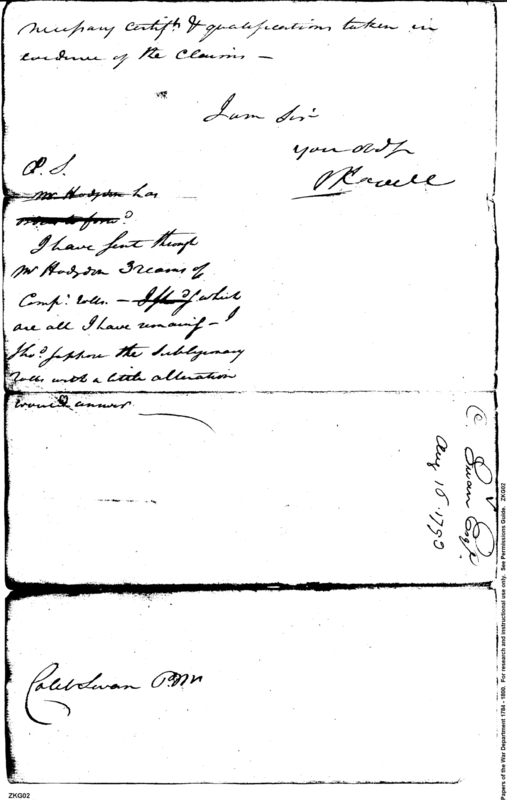 necessary certifts & qualifications taken in
evidence of the claims —
I am Sir
your Obdt
P. S.
Mr Hodgdon has
I have sent through
Mr Hodgdon 3 reams of
Comp.y rolls — which
are all I have remaing — I
Shod suppose the
rolls with a little alteration
would answer
C. Swan Esqr.
Aug 16 1793
Caleb Swan P.M
ZKG02
Papers of the War Department 1784 - 1800. For research and instructional use only. See Permissions Guide. ZKG02